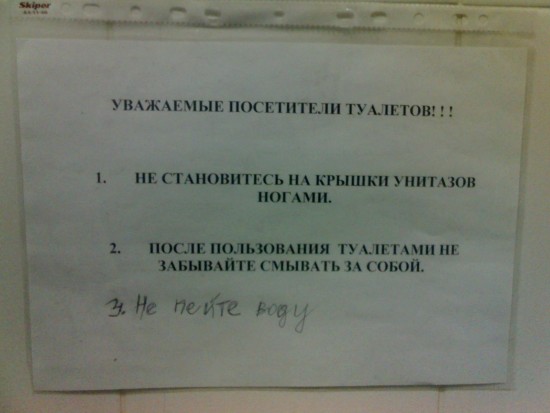 Skiper
УВАЖАЕМЫЕ ПОСЕТИТЕЛИ ТУАЛЕТОВ!!!
1. НЕ СТАНОВИТЕСЬ НА КРЫШКИ УНИТАЗОВ
НОГАМИ.
2. ПОСЛЕ ПОЛЬЗОВАНИЯ ТУАЛЕТАМИ НЕ
ЗАБЫВАЙТЕ СМЫВАТЬ ЗА СОБОЙ.
3. Не пейте воду